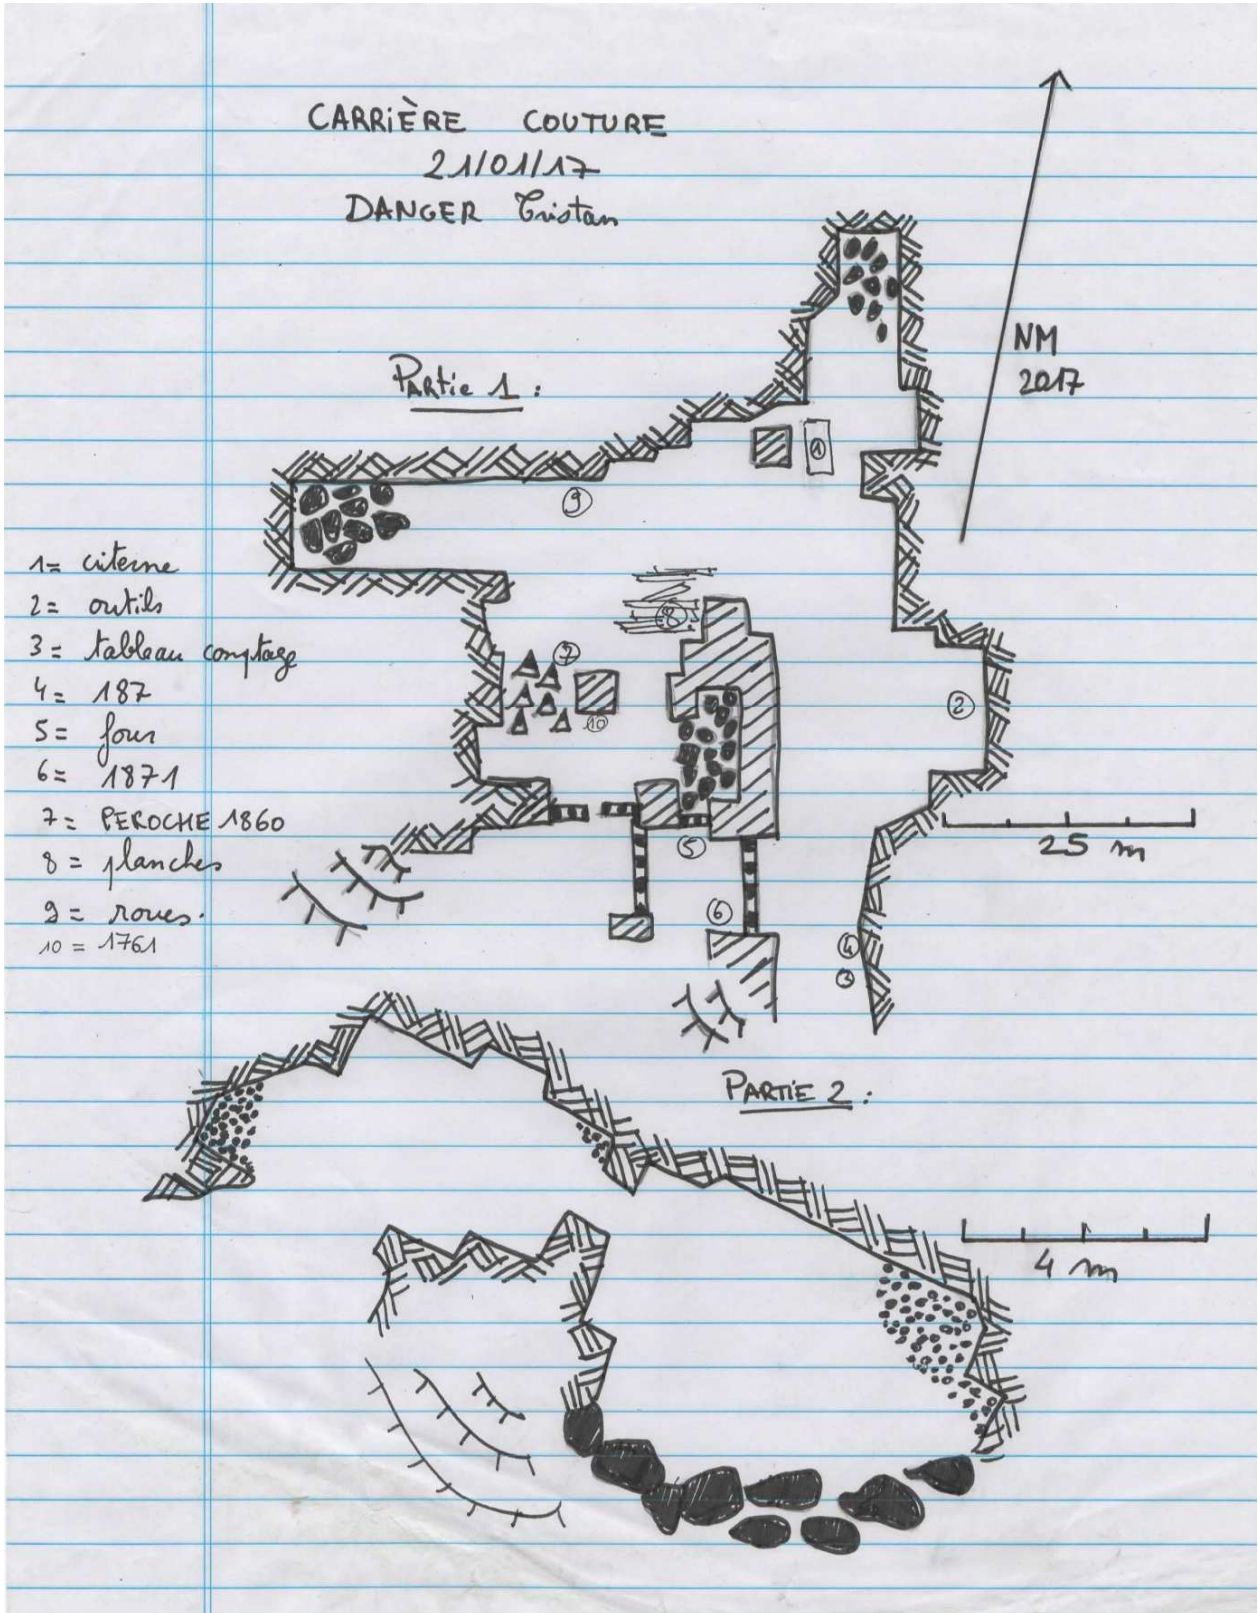 CARRIÈRE COUTURE
21/01/17
DANGER Tristan
NM
2017
Partie 1 :
1
9
8
7
10
2
5
25 m
6
4
3
1= citerne
2= outils
3= tableau comptage
4= 187
5= four
6= 1871
7= PEROCHE 1860
8= planches
9= roues.
10= 1761
PARTIE 2 :
4 m